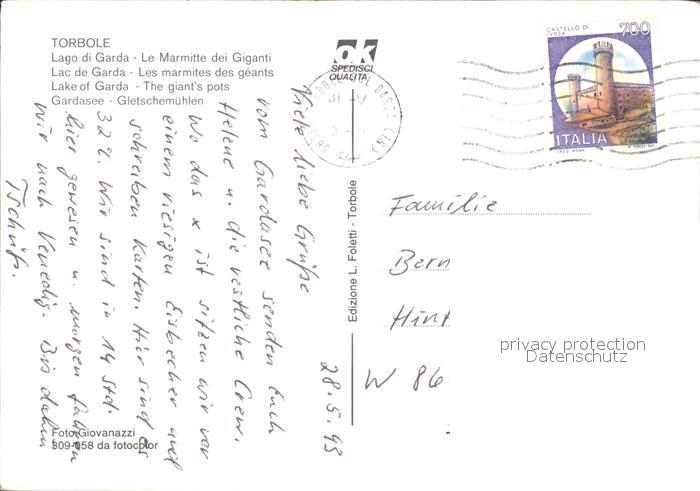 TORBOLE
Lago di Garda - Le Marmitte dei Giganti
Lac de Garda - Les marmites des géants
Lake of Garda - The giant's pots
Gardasee - Gletschemühlen
ok
SPEDISCI
QUALITÀ
CASTELLO DI
IVREA
700
ITALIA
28.5.93
Viele liebe Grüße
vom Gardasee senden Euch
Helene u. die restliche Crew.
Wo das x ist sitzen wir vor
einem riesigen Eisbecher und
schreiben Karten. Hier sind es
32%. Wir sind in 14 Std.
hier gewesen u. morgen fahren
wir nach Venedig. Bis dahin
Tschüß.
Edizione L. Foletti - Torbole
Familie
Bern
Hint
W 86
privacy protection
Datenschutz
Foto Giovanazzi
309-058 da fotocolor